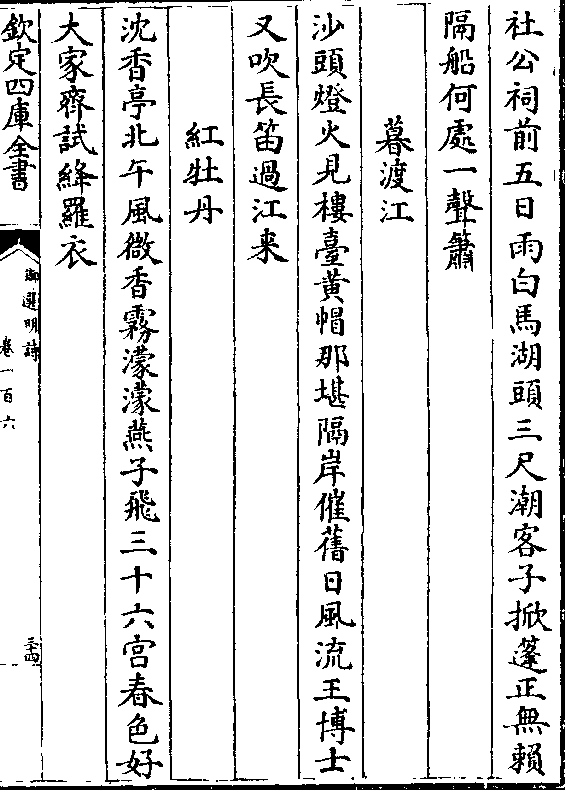 社公祠前五日雨白馬湖頭三尺潮客子掀蓬正無賴
隔船何處一聲簫
暮渡江
沙頭燈火見樓臺黄帽那堪隔岸催舊日風流王博士
又吹長笛過江来
紅牡丹
沈香亭北午風微香霧濛濛燕子飛三十六宫春色好
大家齊試絳羅衣
欽定四庫全書
御選明詩
卷一百六
三十四